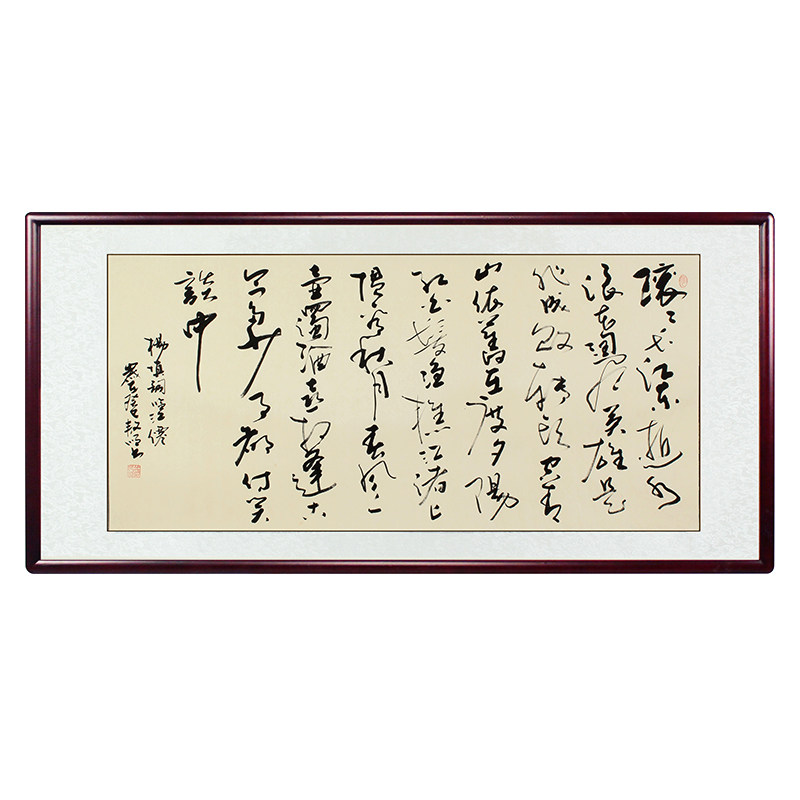 滚々長江東逝水
浪花淘尽英雄是
非成敗轉頭空青
山依舊在度夕陽
紅白髮漁樵江渚上
慣看秋月春風一
壺濁酒喜相逢古
今多少事都付笑
談中
楊慎詞臨江僊
書